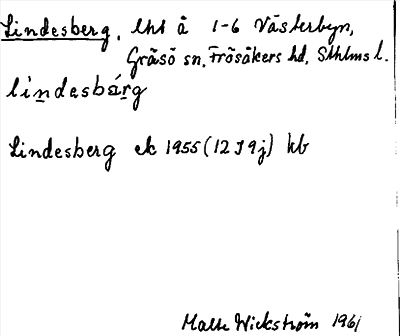 Lindesberg, lht å 1-6 Västerbyn,
Gräsö sn, Frösåkers hd, Sthlms l.
lindesbárg
Lindesberg ek 1955 (12 J 9j) hb
Malte Wickström 1961